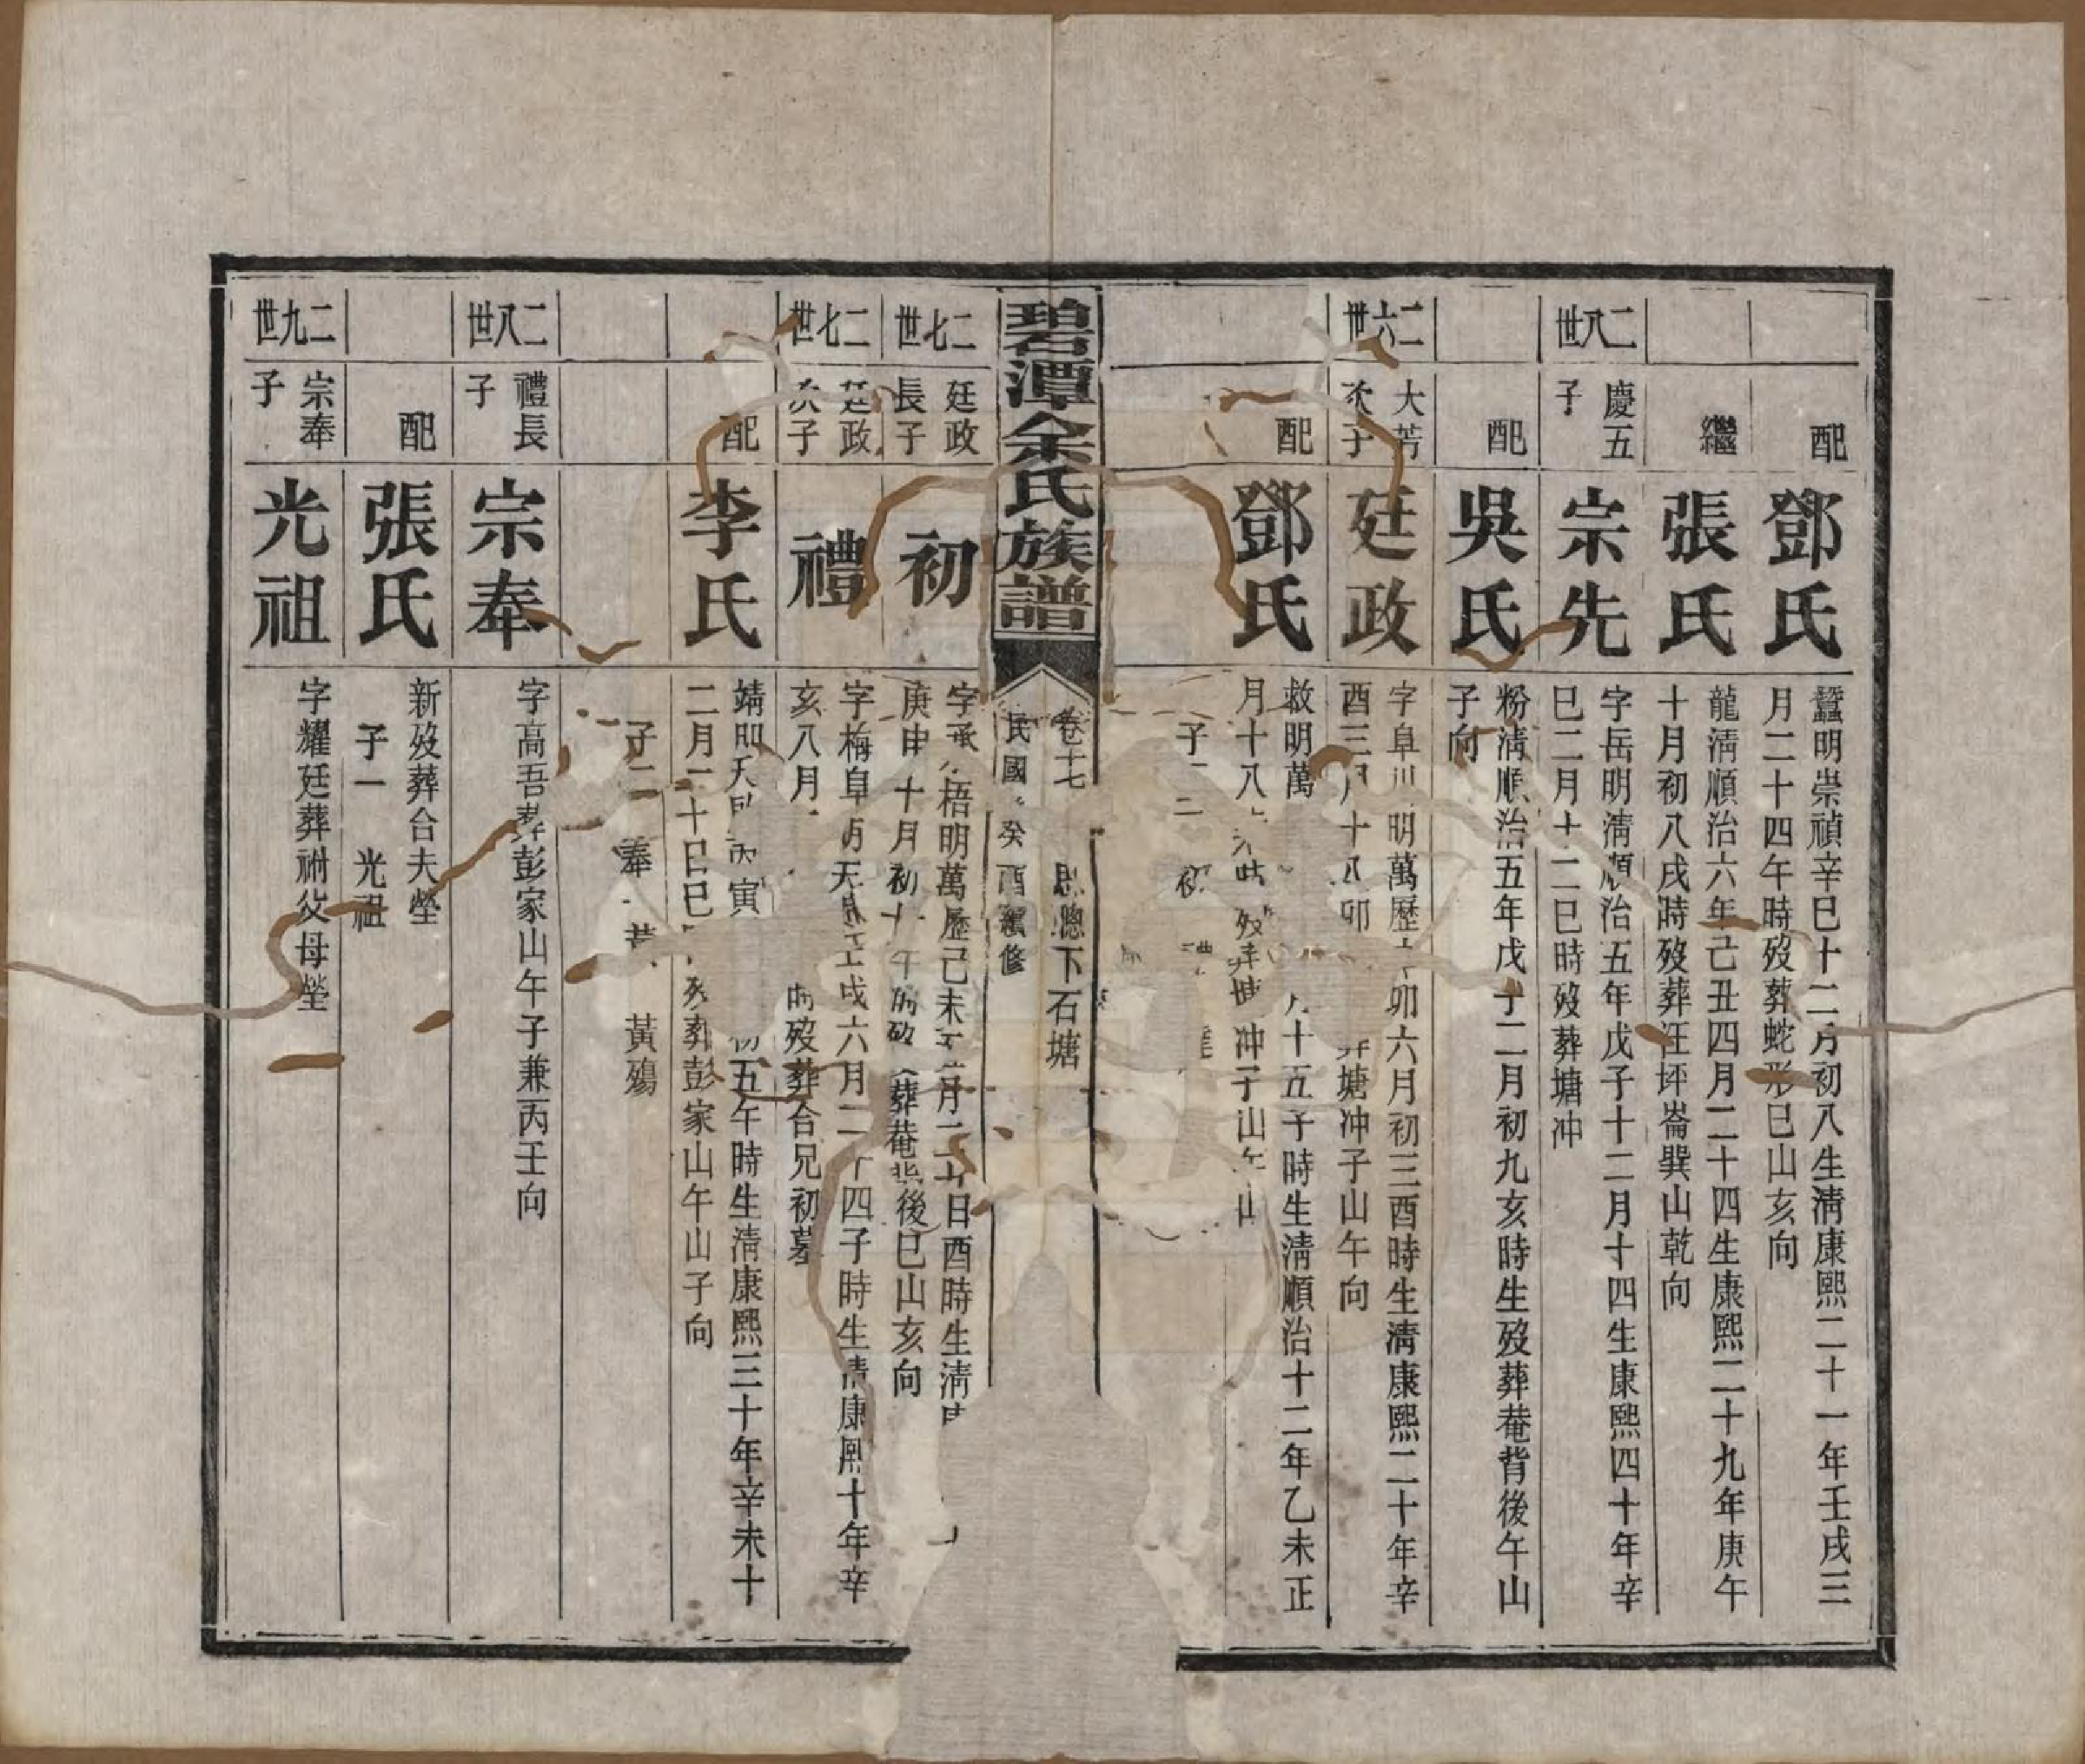 配
鄧氏
蠶明崇禎辛巳十二月初八生清康熙二十一年壬戌三
月二十四午時歿葬蛇形巳山亥向
繼
張氏
龍清順治六年己丑四月二十四生康熙二十九年庚午
十月初八戌時歿葬汪坪崙巽山乾向
二八世
慶五
子
宗先
字岳明清順治五年戊子十二月十四生康熙四十年辛
巳二月十二巳時歿葬塘冲
配
吳氏
粉清順治五年戊子二月初九亥時生歿葬菴背後午山
子向
二六世
大芳
次子
廷政
字阜川明萬歷卯六月初三酉時生清康熙二十年辛
酉三月十八卯葬塘冲子山午向
配
鄧氏
救明萬月十五子時生清順治十二年乙未正
月十八歿葬塘冲子山午山
子二 初 禮
碧潭余氏族譜
卷十七
思聰下石塘
民國癸酉續修
二七世
廷政
長子
初
字梧明萬歷己未月二十日酉時生清
庚申十月初十午時歿葬菴背後巳山亥向
二七世
廷政
次子
禮
字梅阜明天啟壬戌六月二十四子時生清康熙十年辛
亥八月時歿葬合兄初墓
配
李氏
靖明天啟丙寅初五午時生清康熙三十年辛未十
二月二十日巳時歿葬彭家山午山子向
子二 奉 黃 黃殤
二八世
禮長
子
宗奉
字高吾葬彭家山午子兼丙壬向
配
張氏
新歿葬合夫塋
子一 光祖
二九世
宗奉
子
光祖
字耀廷葬祔父母塋